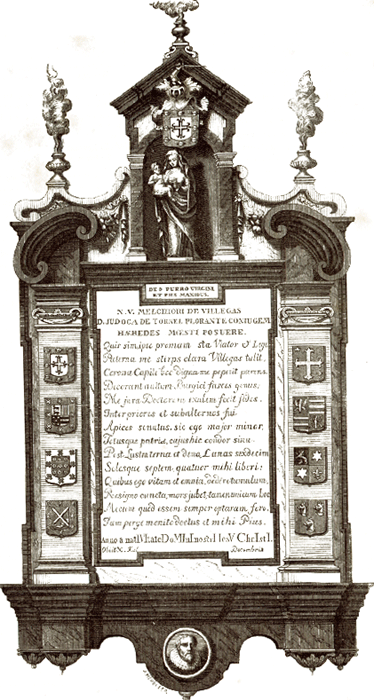 DEO PUERO VIRGINI
ET POS MANIBUS.
N.V. MELCHIORI DE VILLEGAS
D. JUDOCA DE TORREL PLORANTE CONJUGEM
HÆREDES MŒSTI POSUERE.
Quis simique premam sta Viator & Lege
Æterna me stirps clara Villegas tulit.
Cervea Capilli hec digna me peperit parens
Dicerunt aultem Burgici fasces genus,
Me jura Doctorem fecit fides.
Inter priores et subalternos fui
Apices senatus, sic ego major minor,
Totusque patriæ, cujus hic condor sinu.
Post Lustra terna et dena, Lunas sexdecim
Solesque septem, quatuor mihi liberi:
Quibus ego vitam et omnia, dedere tumulum.
Resigno cuncta, mors jubet, tantum hoc
Mecum quod essem semper optaram, fero.
Jam perge mente doctus et mihi Prius.
Anno a
Obiit X. Kal. Decembris